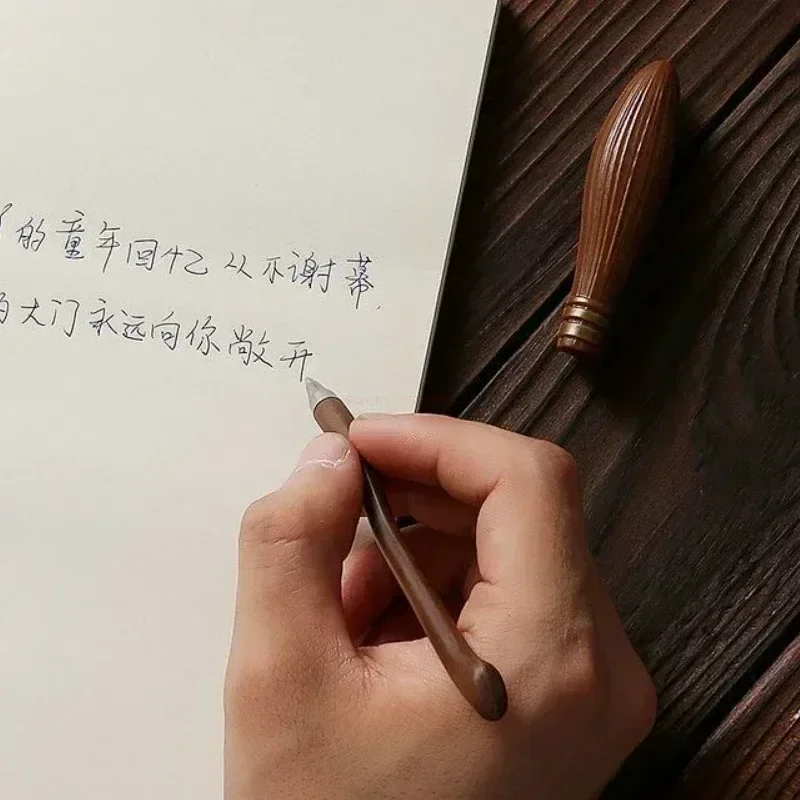 的童年回忆从不谢幕.
大门永远向你敞开